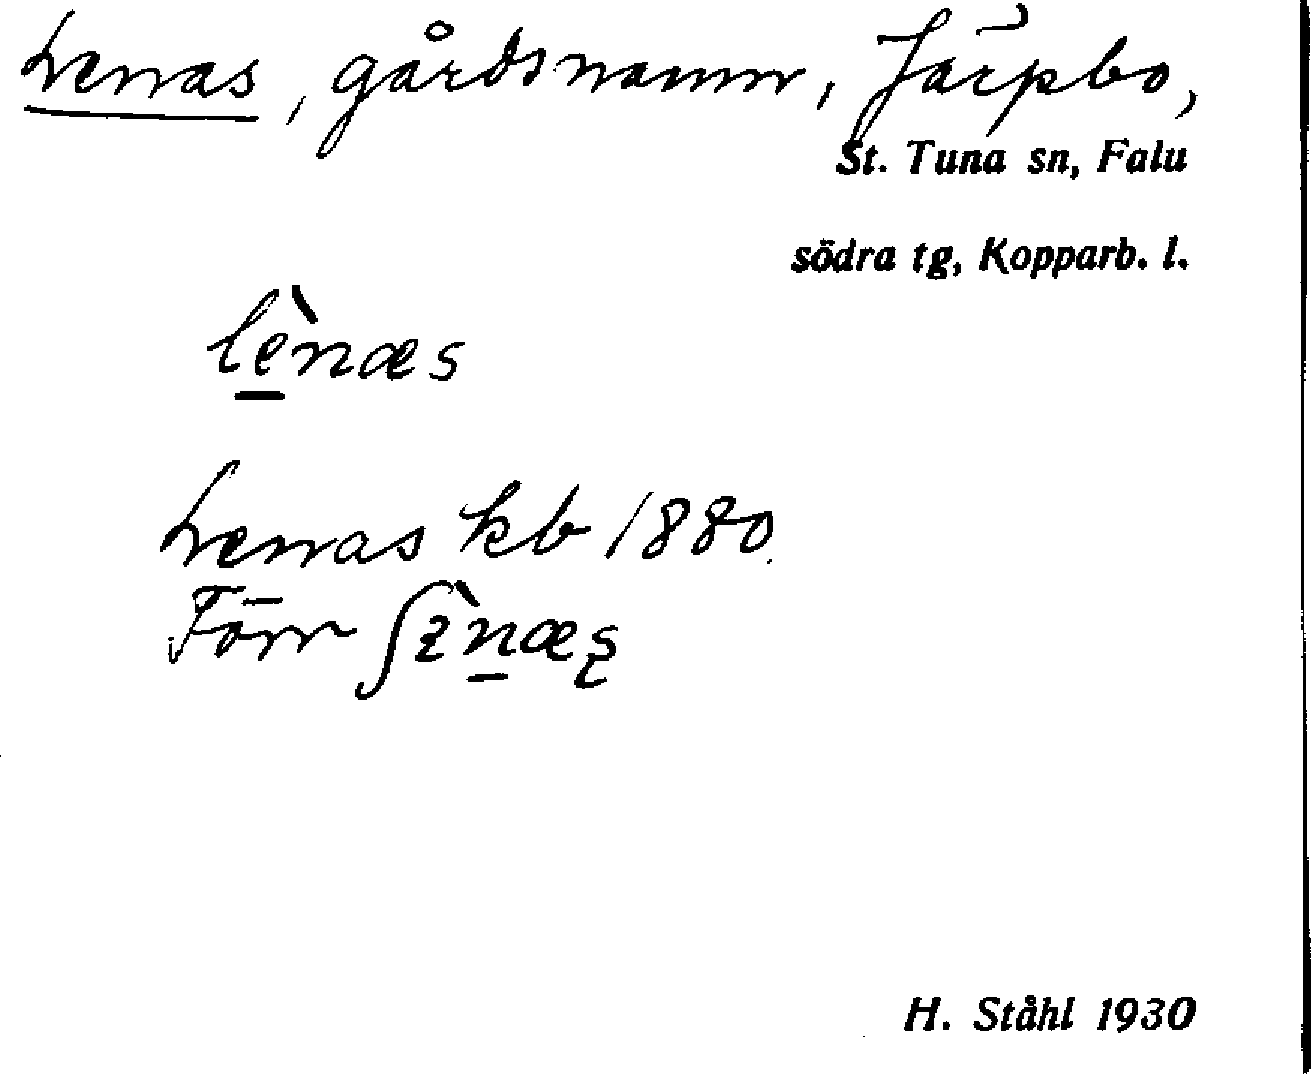 Lenas, gårdsnamn, Järpbo,
St. Tuna sn, Falu
södra tg, Kopparb. l.
lènæs
Lenas kb 1880.
Förr
H. Ståhl 1930